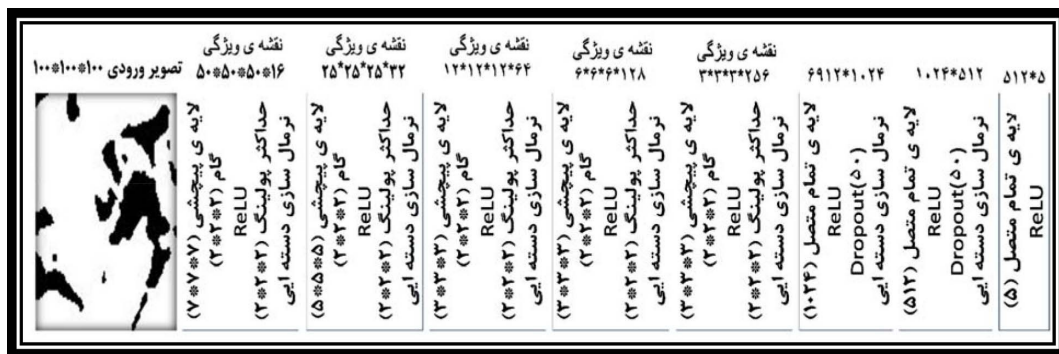 تصویر ورودی ۱۰۰*۱۰۰*۱۰۰
نقشه ی ویژگی
۵۰*۵۰*۵۰*۱۶
لایه ی پیچشی (۷*۷*۷)
گام (۲*۲*۲)
ReLU
حداکثر پولینگ (۲*۲*۲)
نرمال سازی دسته ایی
نقشه ی ویژگی
۲۵*۲۵*۲۵*۳۲
لایه ی پیچشی (۵*۵*۵)
گام (۲*۲*۲)
ReLU
حداکثر پولینگ (۲*۲*۲)
نرمال سازی دسته ایی
نقشه ی ویژگی
۱۲*۱۲*۱۲*۶۴
لایه ی پیچشی (۳*۳*۳)
گام (۲*۲*۲)
ReLU
حداکثر پولینگ (۲*۲*۲)
نرمال سازی دسته ایی
نقشه ی ویژگی
۶*۶*۶*۱۲۸
لایه ی پیچشی (۳*۳*۳)
گام (۲*۲*۲)
ReLU
حداکثر پولینگ (۲*۲*۲)
نرمال سازی دسته ایی
نقشه ی ویژگی
۳*۳*۳*۲۵۶
لایه ی پیچشی (۳*۳*۳)
گام (۲*۲*۲)
ReLU
حداکثر پولینگ (۲*۲*۲)
نرمال سازی دسته ایی
۶۹۱۲*۱۰۲۴
لایه ی تمام متصل (۱۰۲۴)
ReLU
Dropout(۵۰)
نرمال سازی دسته ایی
۱۰۲۴*۵۱۲
لایه ی تمام متصل (۵۱۲)
ReLU
Dropout(۵۰)
نرمال سازی دسته ایی
۵۱۲*۵
لایه ی تمام متصل (۵)
ReLU